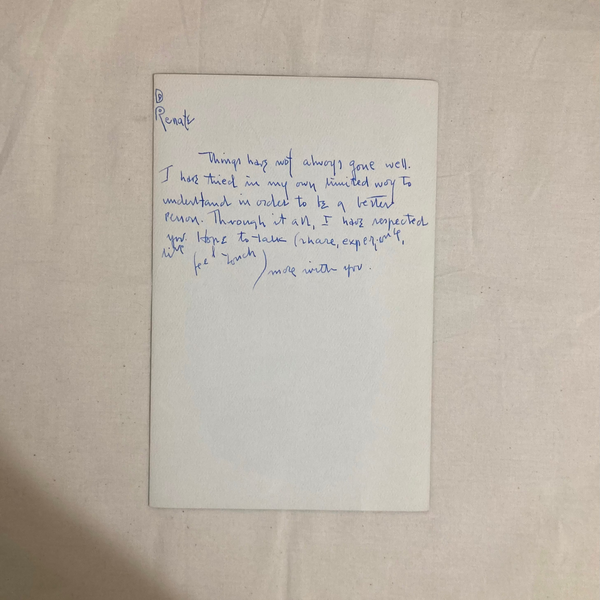 Renate
Things have not always gone well.
I have tried in my own limited way to
understand in order to be a better
person. Through it all, I have respected
you. Hope to talk (share, experience,
live feel touch) more with you.